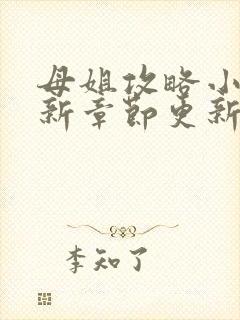 母姐攻略小
新章节更新
李知了